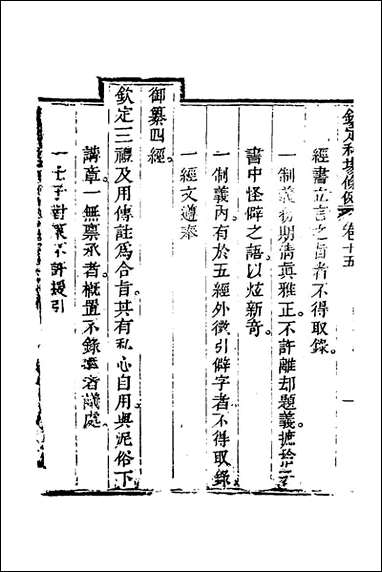 欽定科場條例 卷十五
經書立言之旨者不得取錄
一制義務期清真雅正不許離却題義摭拾子
書中怪僻之語以炫新奇
一制義內有於五經外徵引僻字者不得取錄
一經文遵奉
御纂四經
欽定三禮及用傳註爲合旨其有私心自用與泥俗下
講章一無稟承者概置不錄違者議處
一士子對策不許援引